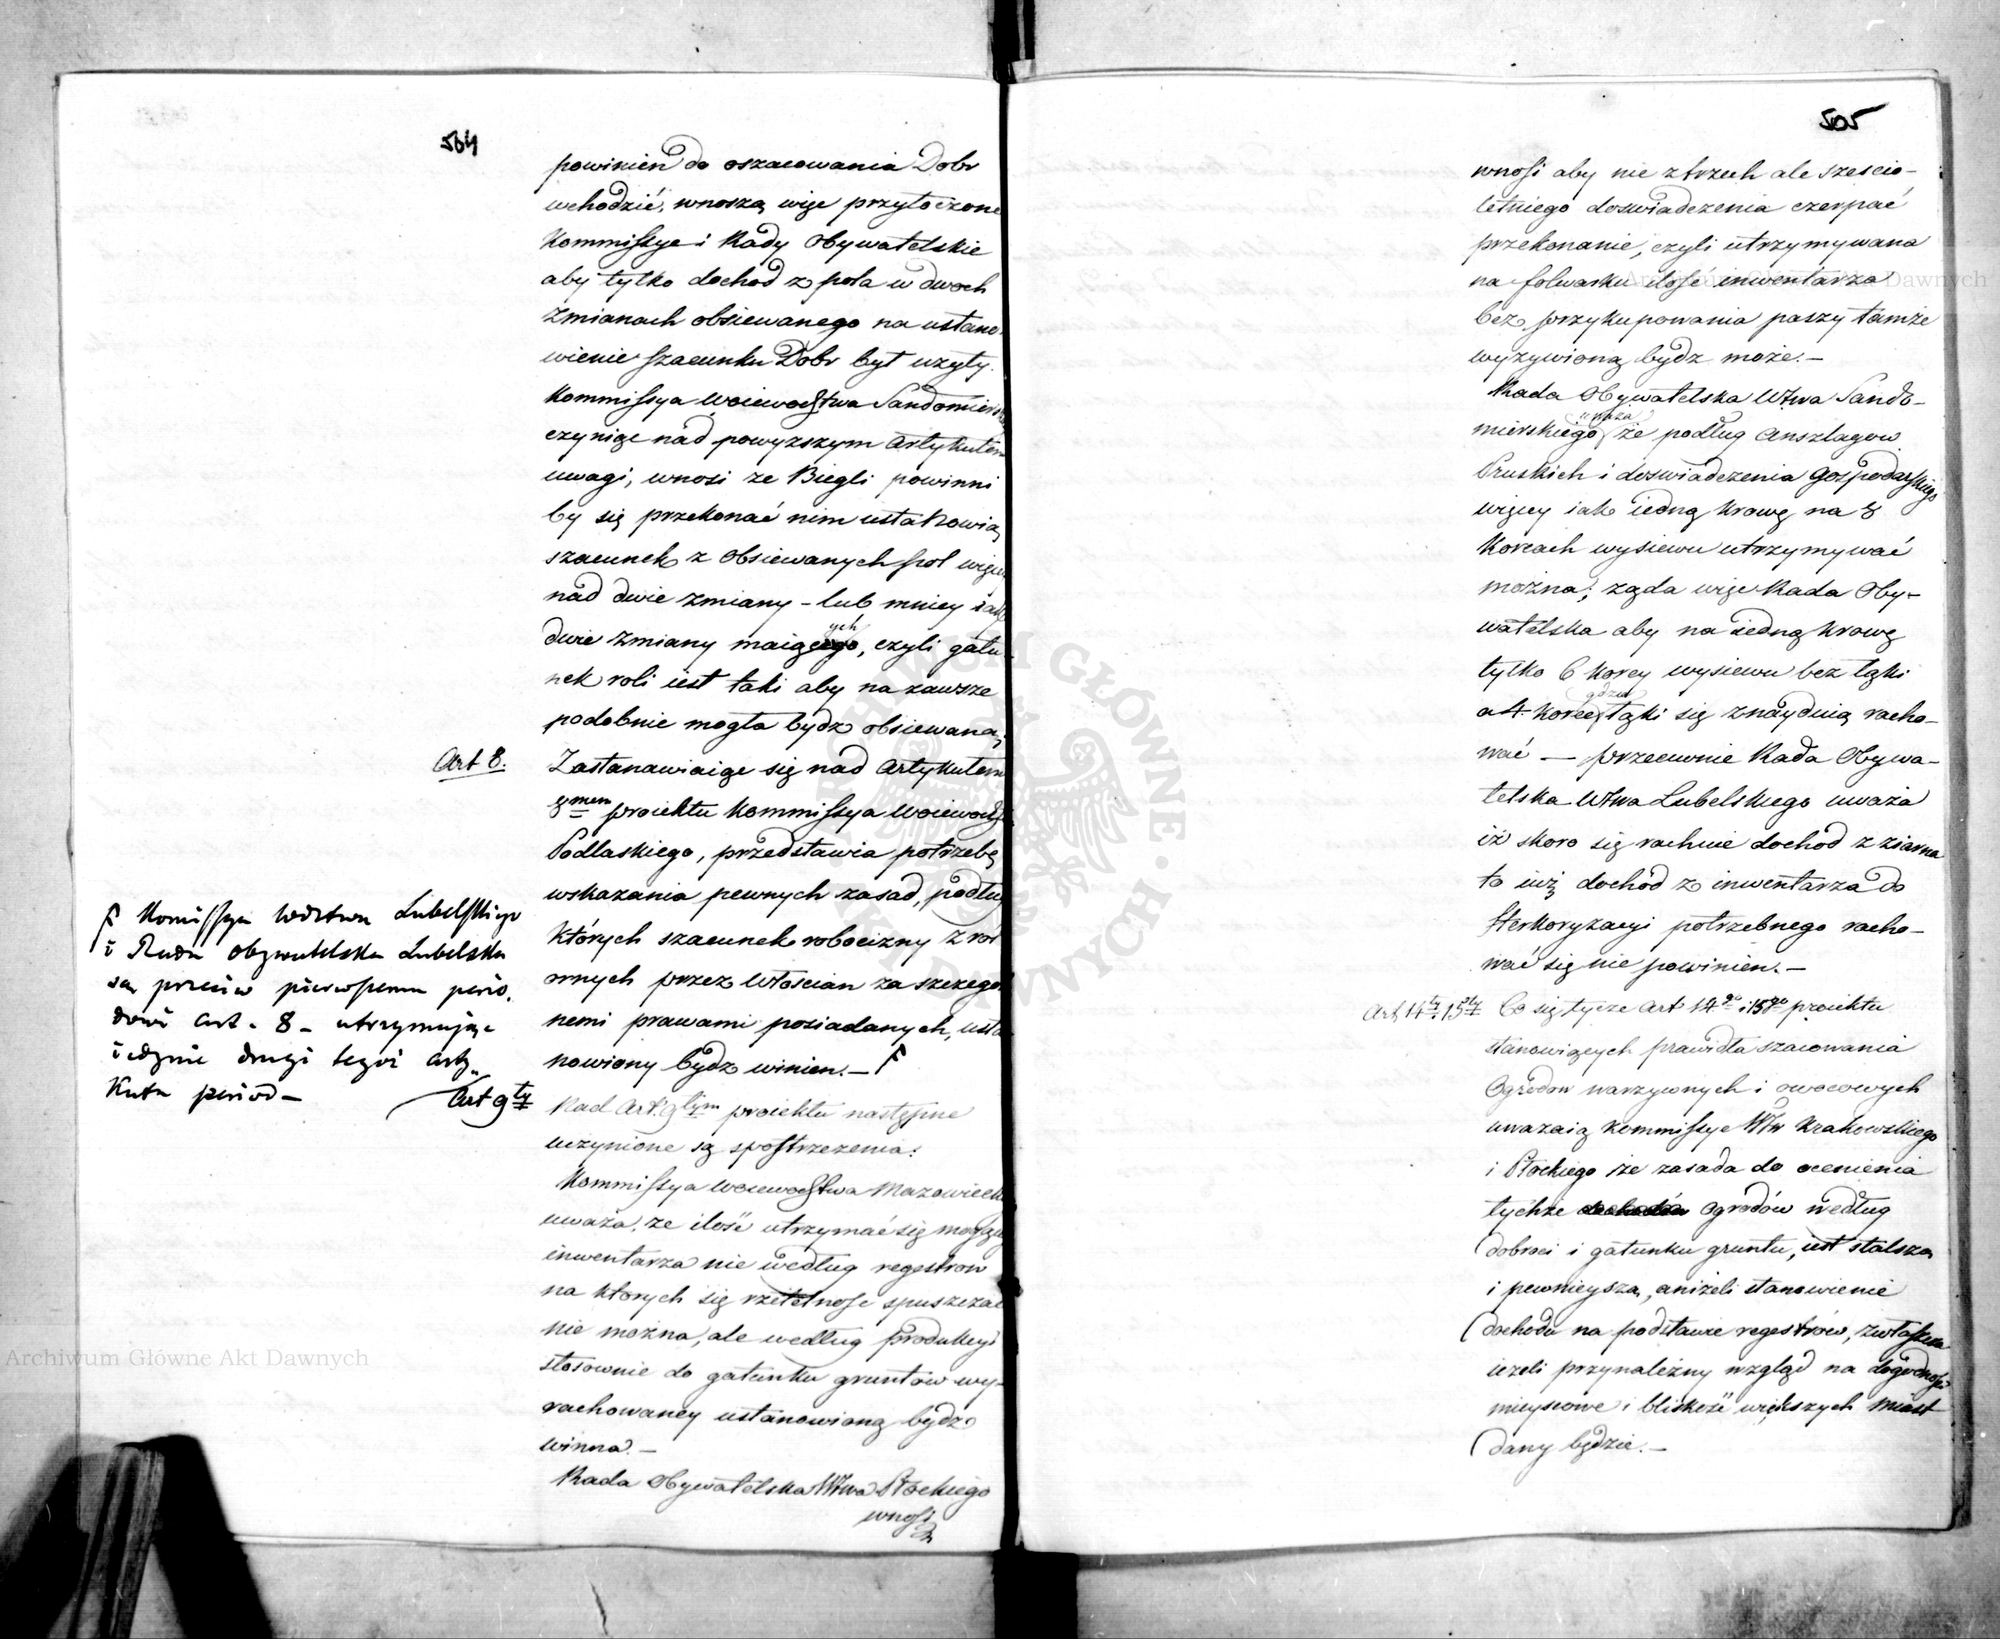 504
powinien do oszacowania Dobr
wchodzić, wnoszą więc przytoczone
Kommissye i Rady Obywatelskie
aby tylko dochod z pola w dwoch
zmianach obsiewanego na ustano-
wienie szacunku Dobr był użyty.
Kommissya Woiewodztwa Sandomiers
czyniąc nad powyzszym Artykułem
uwagi, wnosi ze Biegli powinni
by się przekonać nim ustanowią
szacunek z obsiewanych pol więcey
nad dwie zmiany – lub mniey iak
dwie zmiany maiących, czyli gatu-
nek roli iest taki aby na zawsze
podobnie mogła bydz obsiewaną.
Art 8.
Zastanawiaiąc się nad Artykułem
8mem proiektu Kommissya Woiewodz
Podlaskiego, przedstawia potrzebę
wskazania pewnych zasad, podług
których szacunek robocizny z roz
mych przez Włoscian za szczegol
nemi prawami posiadanych, usta
nowiony bydz winien. –
Komissya Wdztwa Lubelskiego
i Rada Obywatelska Lubelska
są przeciw pierwszemu perio-
dowi art. 8 – utrzymując
iedynie drugi tegoż arty-
kułu period –
Art 9ty
Nad Art. 9tym proiektu następne
uczynione są spostrzezenia:
Kommissya Woiewodztwa Mazowieck
uważa, ze ilość utrzymać się mogące
inwentarza nie według regestrow
na ktorych się rzetelnosc spuszczac
nie można, ale według produkcyi
stosownie do gatunku gruntow wy-
rachowaney ustanowioną bydz
winna. –
Rada Obywatelska Wztwa Płockiego
wnosi
505
wnosi aby nie z trzech ale szescio-
letniego doswiadczenia czerpać
przekonanie, czyli utrzymywana
na folwarku ilość inwentarza
bez przykupowania paszy tamże
wyzywioną bydz może. –
Rada Obywatelska Wztwa Sando-
mierskiego uważa że podług Anszlagow
Pruskich i doswiadczenia Gospodarskiego
więcey iak iedną krowę na 8
Korcach wysiewu utrzymywać
można; ząda więc Rada Oby-
watelska aby na iedną krowę
tylko 6 korcy wysiewu bez łąki
a 4 korce gdzie łąki się znaydują racho-
wać – przeciwnie Rada Obywa-
telska Wztwa Lubelskiego uważa
iż skoro się rachuie dochod z ziarna
to iuż dochod z inwentarza do
sterkoryzacyi potrzebnego racho-
wać się nie powinien. –
Art 14ty i 15ty
Co się tycze Art 14go i 15go proiektu
stanowiących prawidła szacowania
Ogrodow warzywnych i owocowych
uwazaią Kommissye Wztw Krakowskiego
i Płockiego że zasada do ocenienia
tychze Ogrodów według
dobroci i gatunku gruntu, iest stalszą
i pewnieyszą, anizeli stanowienie
dochodu na podstawie regestrów, zwłaszcza
iezeli przynależny wzgląd na dogodnosci
mieyscowe i bliskość większych miast
dany będzie. –
Archiwum Główne Akt Dawnych